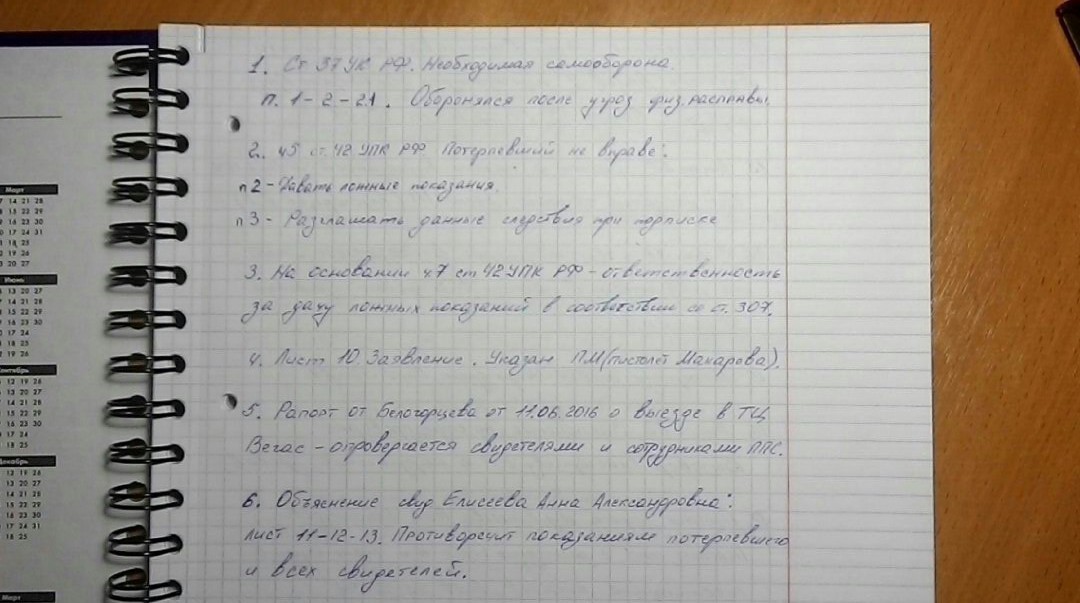 1. Ст 37 УК РФ. Необходимая самооборона.
п. 1-2-2.1. Оборонялся после угроз физ. расправы.
2. ч5 ст. 42 УПК РФ Потерпевший не вправе:
п2 - Давать ложные показания.
п3 - Разглашать данные следствия при подписке
3. На основании ч7 ст 42 УПК РФ - ответственность
за дачу ложных показаний в соответствии со ст. 307.
4. Лист 10 Заявление. Указан ПМ (пистолет Макарова).
5. Рапорт от Белогорцева от 11.06.2016 о выезде в ТЦ
Вегас - опровергается свидетелями и сотрудниками ППС.
6. Объяснение свид Елисеева Анна Александровна:
лист 11-12-13. Противоречит показаниям потерпевшего
и всех свидетелей.
Март
Июнь
Сентябрь
Декабрь
Март